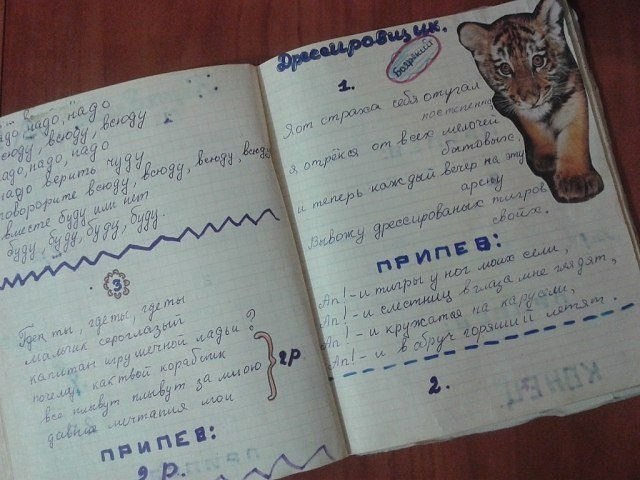 надо, надо, надо
всюду, всюду, всюду
надо, надо, надо
надо верить чуду
говорорите всюду, всюду, всюду, всюду
вместе буду или нет
буду, буду, буду, буду.
3
Где ты, где ты, где ты
мальчик сероглазый
капитан игрушечной ладьи ?
почему как твой кораблик
все плывут плывут за мною
давние мечтания мои
2р.
ПРИПЕВ:
2 р.
Дрессировщик.
Боярский
1.
Я от страха себя отучал
постепенно,
я, отрёкся от всех мелочей
бытовых,
и теперь каждый вечер на эту
арену
Вывожу дрессированых тигров
своих.
ПРИПЕВ:
Ап! - и тигры у ног моих сели,
Ап! - и с лестниц в глаза мне глядят,
Ап! - и кружатся на карусели,
Ап! - и в обруч горящий летят.
2.
КОНЕЦ